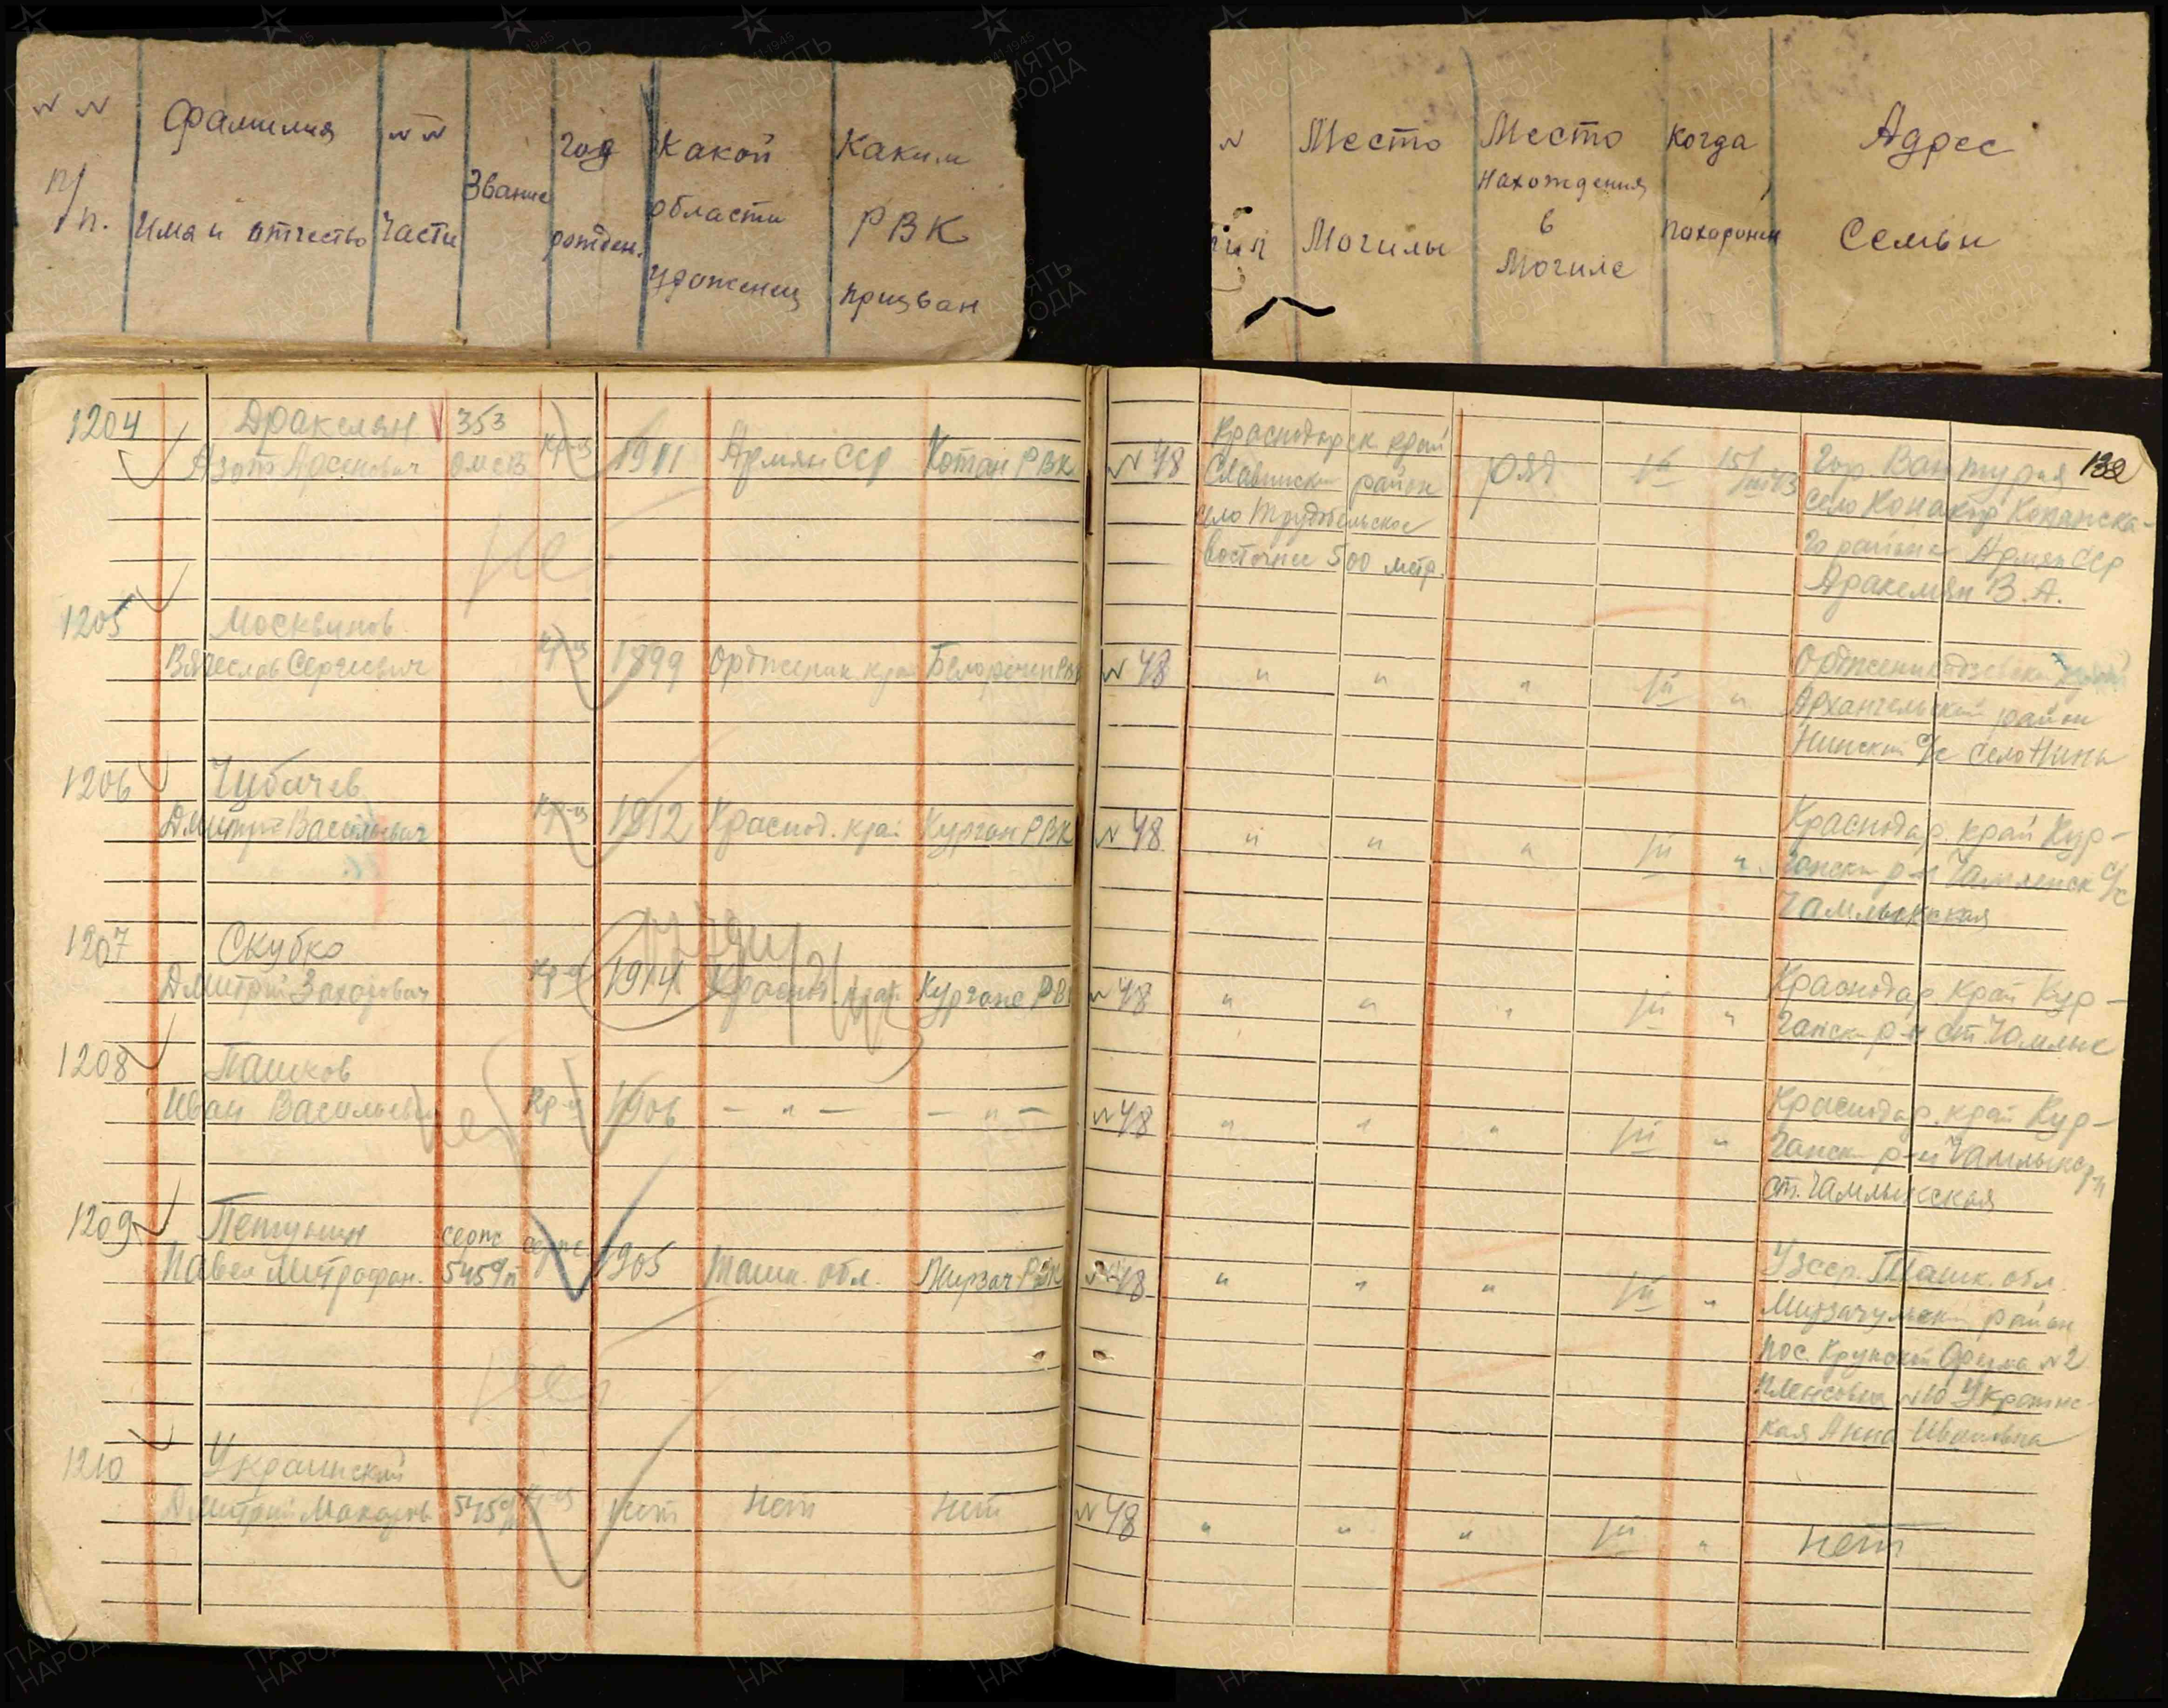 № № п/п.
Фамилия
Имя и отчество
№ №
части
Звание
год
рожден.
Какой
области
уроженец
Каким
РВК
призван
№
Место
Могилы
Место
нахождения
в
Могиле
Когда
похоронен
Адрес
Семьи
132
1204 Аракелян 353
Азат Арсенович омсв Кр-ц 1911 Армян ССР Котан РВК
№ 48 Краснодарск край
Славянский район
село Трудобельское
восточнее 500 метр.
ряд
15/III 43
село Конакор
го района Армян ССР
Аракелян В. А.
1205 Москвинов
Вячеслав Сергеевич Кр-ц 1899 Орджерик край Белоречен РВК
№ 48 " " " "
Орджоникидзевский край
Архангельский район
Нинский с/с село Нины
1206 Чубачев
Дмитрий Васильевич Кр-ц 1912 Краснод. край Курган РВК
№ 48 " " " "
Краснодар. край Кур-
ганский р-н с/с
Чамлыкская
1207 Скубко
Дмитрий Захарович Кр-ц 1914 Краснод. край Кургане РВК
№ 48 " " " "
Краснодар. край Кур-
ганск р-н ст. Чамлык
1208 Пашков
Иван Васильевич Кр-ц 1906 — " — — " —
№ 48 " " " "
Краснодар. край Кур-
ганск р-н
ст. Чамлыкская
1209 Петунин серж
Павел Митрофан. 545 сп серж. 1905 Ташк. обл. Мирзач РВК
№ 48 " " " "
УзССР. Ташк. обл
Мирзачульский район
пос. Крупской Ферма №2
№10 Украинс-
кая Анна Ивановна
1210 Украинский
Дмитрий Макаров 545 сп Кр-ц нет нет нет
№ 48 " " " "
нет